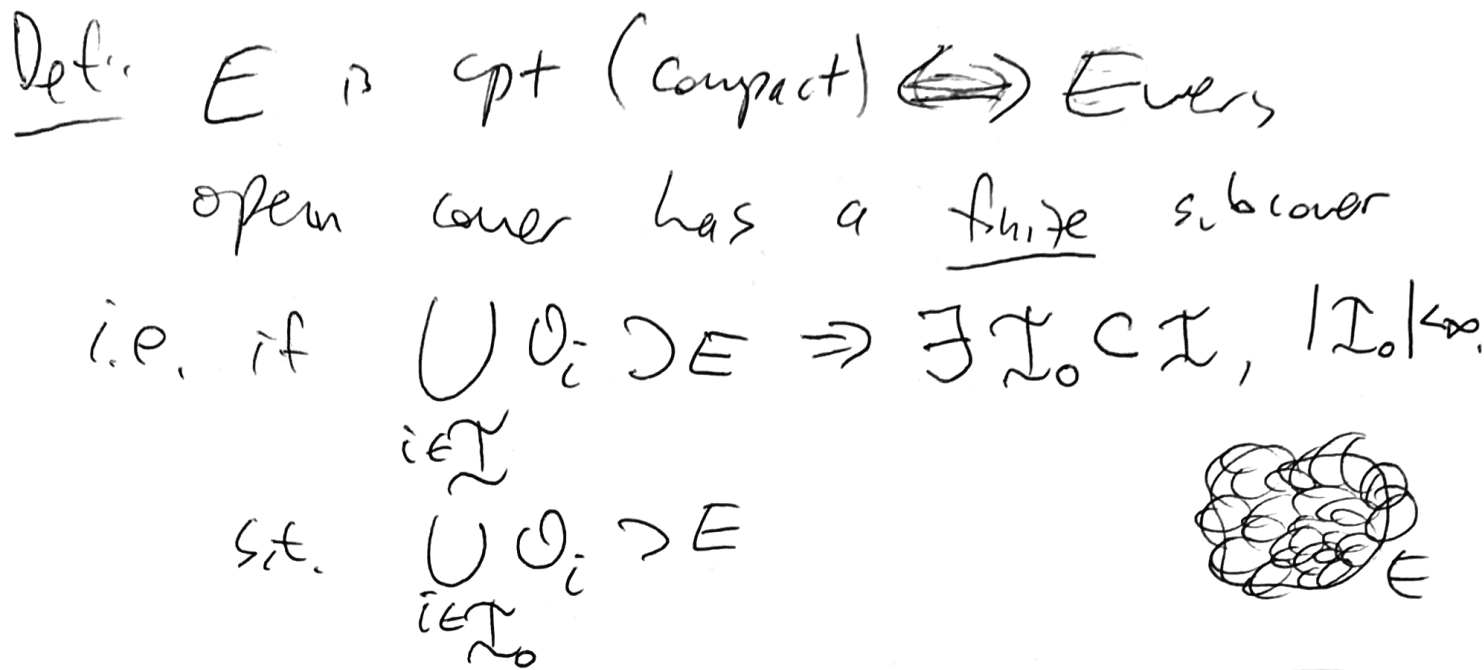 Def: E is cpt (compact) ⟺ Every
open cover has a finite subcover
i.e. if ⋃ O_i ⊃ E ⇒ ∃ I_0 ⊂ I, |I_0| < ∞.
i ∈ I
s.t. ⋃ O_i ⊃ E
i ∈ I_0
E